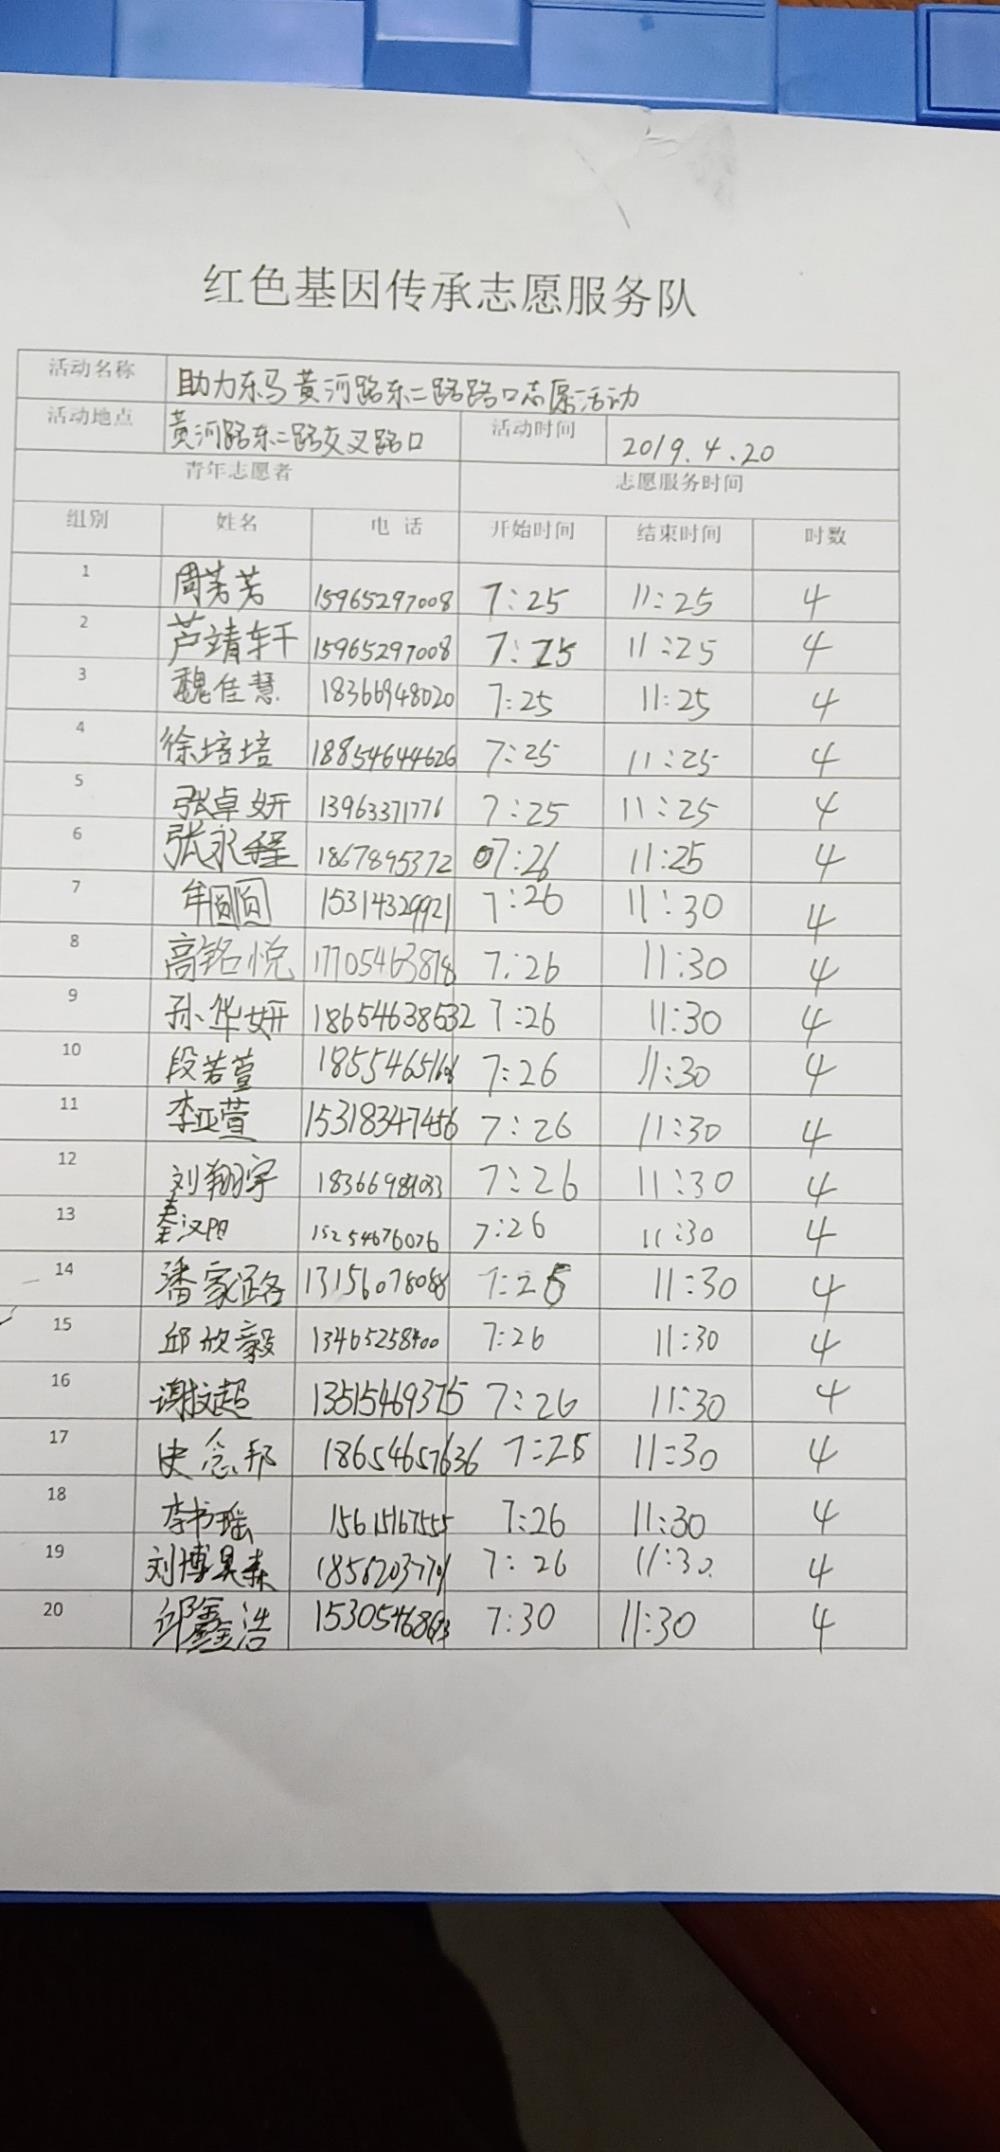 红色基因传承志愿服务队
活动名称 助力东马黄河路东二路路口志愿活动
活动地点 黄河路东二路交叉路口 活动时间 2019.4.20
青年志愿者 志愿服务时间
组别 姓名 电 话 开始时间 结束时间 时数
1 周芳芳 15965297008 7:25 11:25 4
2 芦靖轩 15965297008 7:25 11:25 4
3 魏佳慧 18366948020 7:25 11:25 4
4 徐培培 18854644626 7:25 11:25 4
5 张卓妍 13963371776 7:25 11:25 4
6 张永程 1867895372 07:26 11:25 4
7 牟圆圆 15314329921 7:26 11:30 4
8 高铭悦 17705463878 7:26 11:30 4
9 孙华妍 18654638532 7:26 11:30 4
10 段若萱 7:26 11:30 4
11 李亚萱 15318347456 7:26 11:30 4
12 刘翔宇 7:26 11:30 4
13 秦汉阳 15254676076 7:26 11:30 4
14 潘家潞 13156078088 7:26 11:30 4
15 邱欣毅 13465258400 7:26 11:30 4
16 谢文超 13515469375 7:26 11:30 4
17 史念邦 18654657636 7:26 11:30 4
18 李书瑶 15615167555 7:26 11:30 4
19 刘博昊森 7:26 11:30 4
20 邱鑫浩 7:30 11:30 4